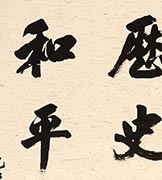 歷史
和平